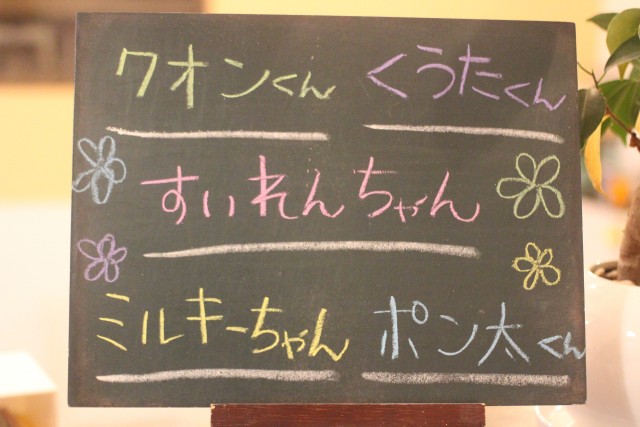 クオンくん くうたくん
すいれんちゃん
ミルキーちゃん ポン太くん